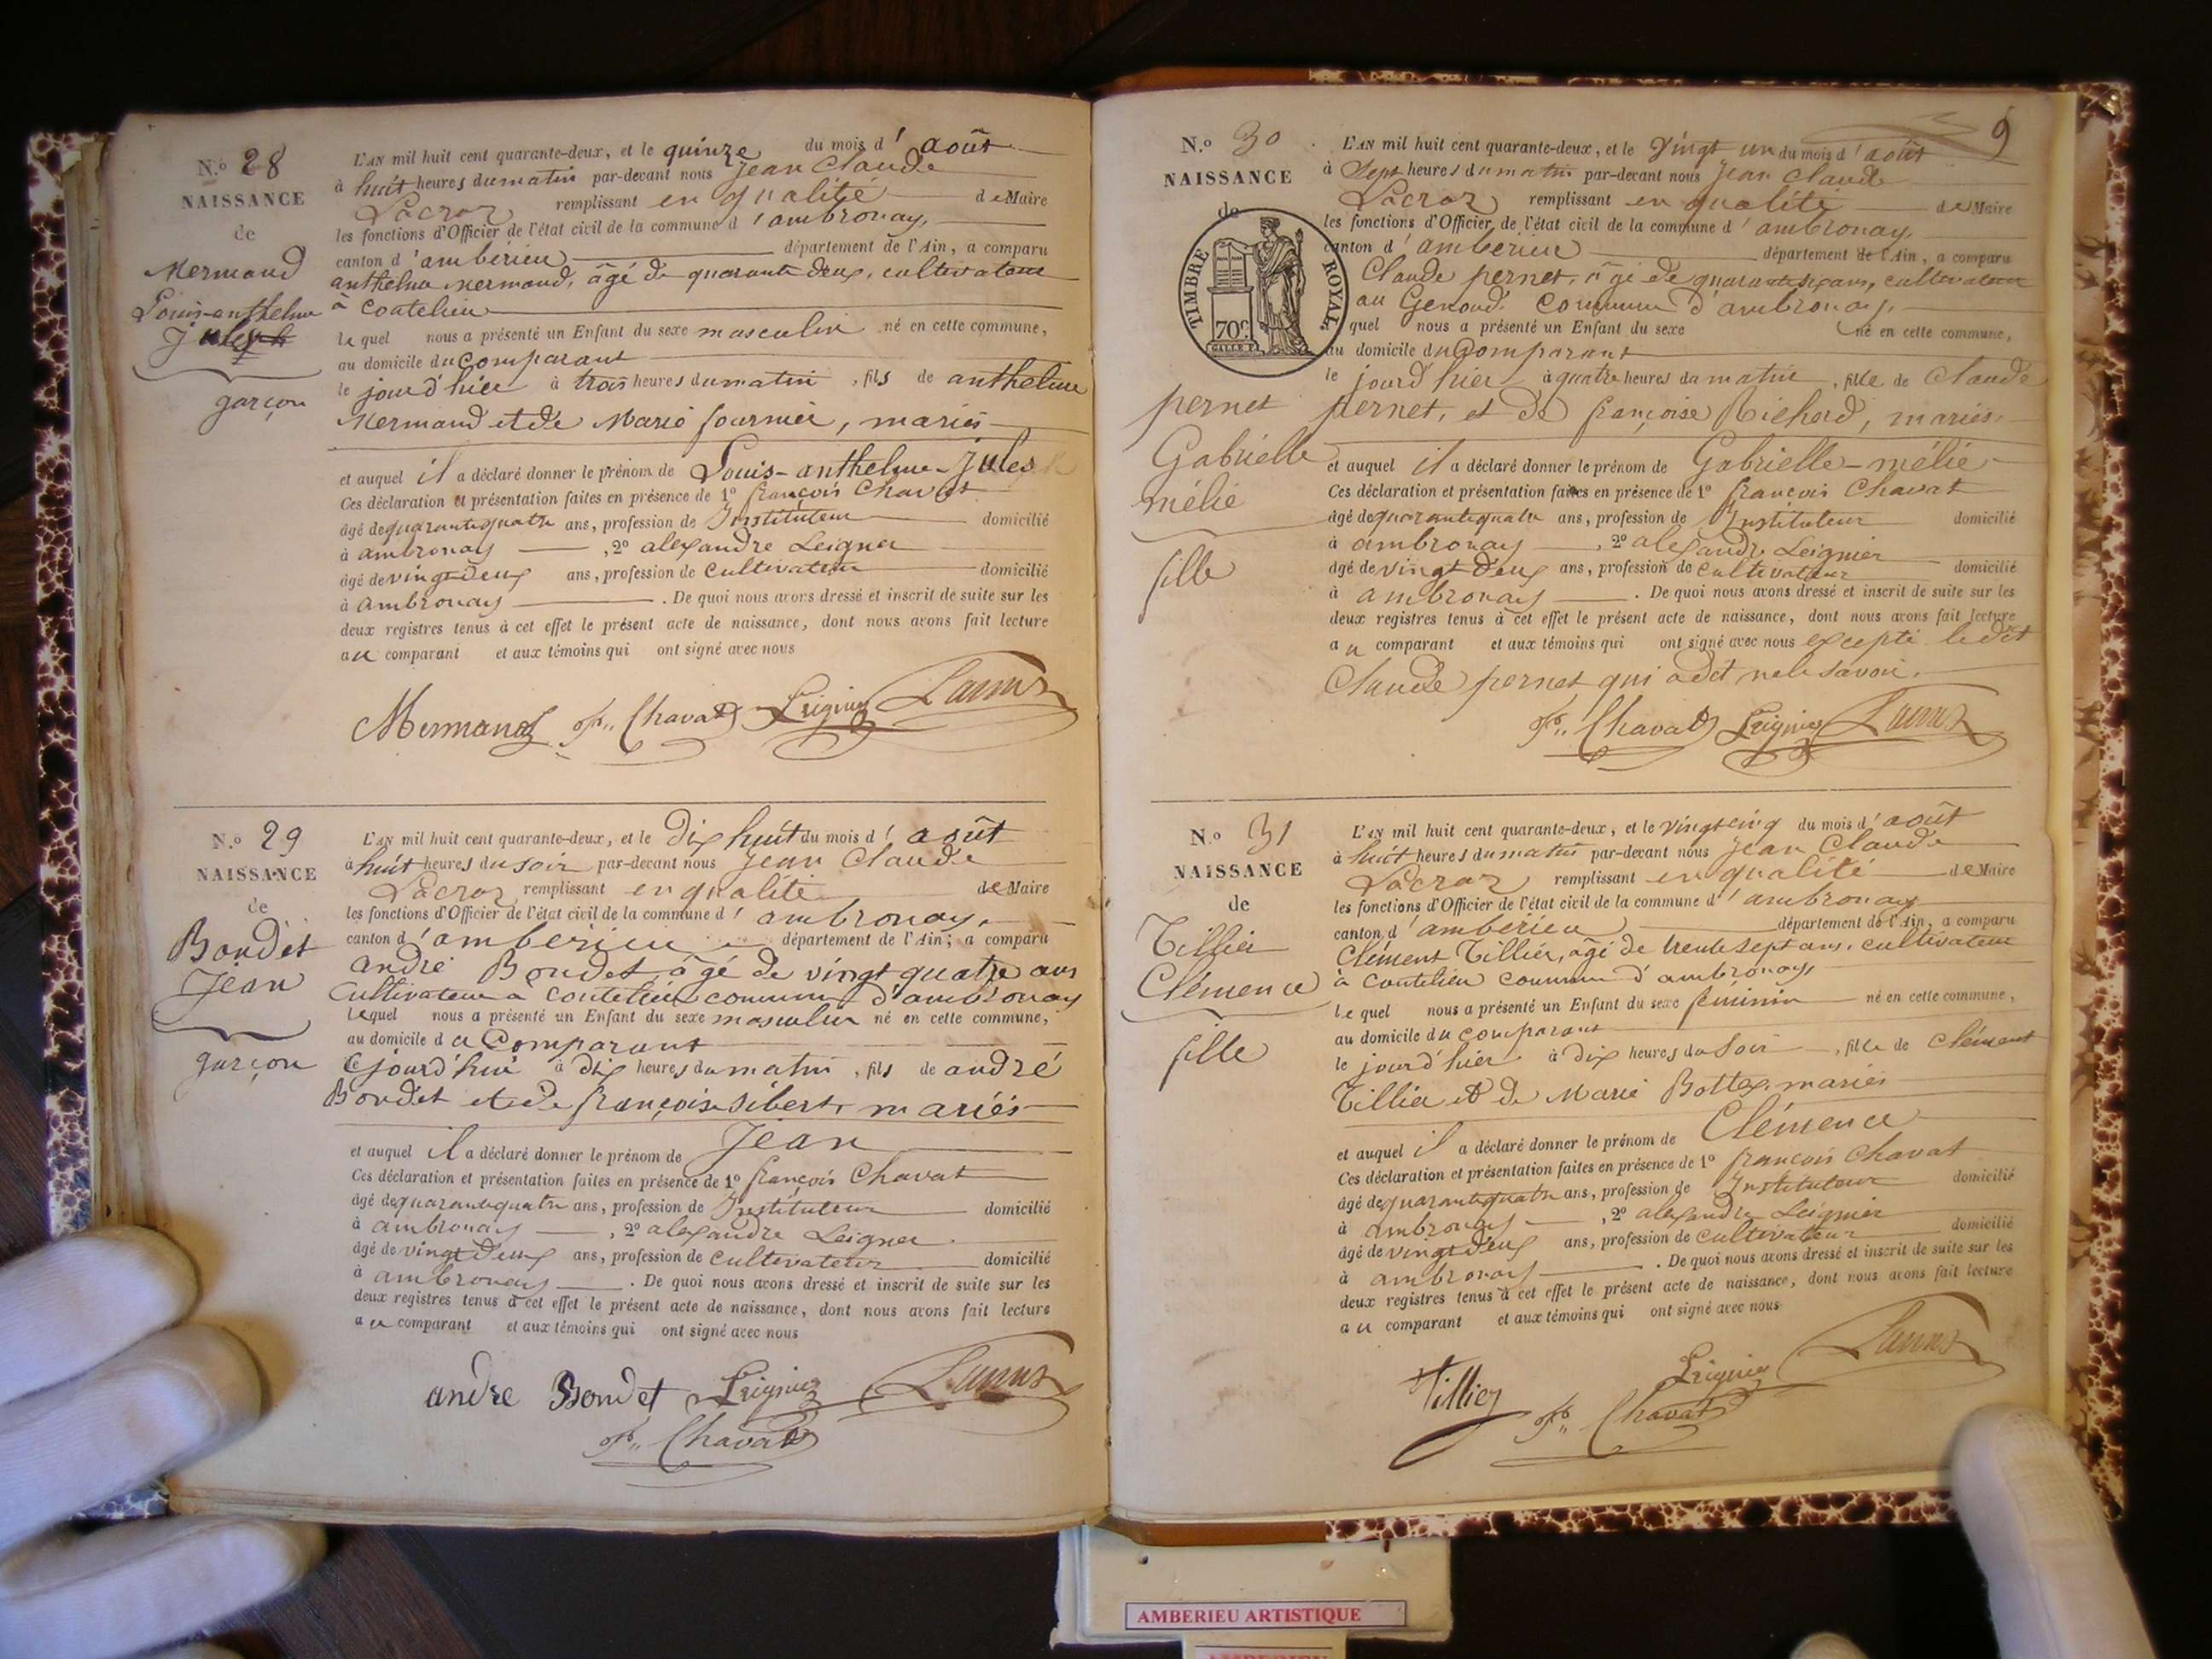 N.° 28
NAISSANCE
de
Mermand
Louis-anthelme
Jules
garçon
L'AN mil huit cent quarante-deux, et le quinze du mois d'août
à huit heures du matin par-devant nous Jean Claude
Lacroz remplissant en qualité de Maire
les fonctions d'Officier de l'état civil de la commune d'ambronay,
canton d'ambérieu département de l'Ain, a comparu
anthelme Mermand, âgé de quarante deux, cultivateur
à Coutelieu
lequel nous a présenté un Enfant du sexe masculin né en cette commune,
au domicile du Comparant
le jourd'hier à trois heures du matin, fils de anthelme
Mermand et de Marie fournier, mariés
et auquel il a déclaré donner le prénom de Louis-anthelme-Jules
Ces déclaration et présentation faites en présence de 1° françois Chavat
âgé de quarantequatre ans, profession de Instituteur domicilié
à ambronay, 2° alexandre Leignier
âgé de vingt deux ans, profession de Cultivateur domicilié
à Ambronay. De quoi nous avons dressé et inscrit de suite sur les
deux registres tenus à cet effet le présent acte de naissance, dont nous avons fait lecture
au comparant et aux témoins qui ont signé avec nous
Mermand fs. Chavat Leignier Lacroz
N.° 29
NAISSANCE
de
Bondet
Jean
garçon
L'AN mil huit cent quarante-deux, et le Dix huit du mois d'août
à huit heures du soir par-devant nous Jean Claude
Lacroz remplissant en qualité de Maire
les fonctions d'Officier de l'état civil de la commune d'ambronay,
canton d'ambérieu département de l'Ain; a comparu
andré Bondet, âgé de vingt quatre ans
Cultivateur à Coutelieu commune d'ambronay
lequel nous a présenté un Enfant du sexe masculin né en cette commune,
au domicile du Comparant
Cejourd'hui à dix heures du matin, fils de andré
Bondet et de françoise Sibert, mariés
et auquel il a déclaré donner le prénom de Jean
Ces déclaration et présentation faites en présence de 1° françois Chavat
âgé de quarantequatre ans, profession de Instituteur domicilié
à ambronay, 2° alexandre Leignier.
âgé de vingt deux ans, profession de Cultivateur domicilié
à ambronay. De quoi nous avons dressé et inscrit de suite sur les
deux registres tenus à cet effet le présent acte de naissance, dont nous avons fait lecture
au comparant et aux témoins qui ont signé avec nous
andre Bondet Leignier Lacroz
fs. Chavat
9
N.° 30
NAISSANCE
de
TIMBRE ROYAL
70c
pernet
Gabrielle
mélie
fille
L'AN mil huit cent quarante-deux, et le vingt un du mois d'août
à Sept heures du matin par-devant nous Jean Claude
Lacroz remplissant en qualité de Maire
les fonctions d'Officier de l'état civil de la commune d'ambronay,
canton d'ambérieu département de l'Ain, a comparu
Claude pernet, âgé de quarante six ans, cultivateur
au Genoud, Commune d'ambronay,
quel nous a présenté un Enfant du sexe né en cette commune,
au domicile du Comparant
le jourd'hier à quatre heures du matin, fille de Claude
pernet, et de françoise Richard, mariés.
et auquel il a déclaré donner le prénom de Gabrielle-mélie
Ces déclaration et présentation faites en présence de 1° françois Chavat
âgé de quarantequatre ans, profession de Instituteur domicilié
à ambronay, 2° alexandre Leignier
âgé de vingt deux ans, profession de Cultivateur domicilié
à ambronay. De quoi nous avons dressé et inscrit de suite sur les
deux registres tenus à cet effet le présent acte de naissance, dont nous avons fait lecture
au comparant et aux témoins qui ont signé avec nous excepté ledit
Claude pernet qui a dit ne le savoir.
fs. Chavat Leignier Lacroz
N.° 31
NAISSANCE
de
Tillier
Clémence
fille
L'AN mil huit cent quarante-deux, et le vingt cinq du mois d'août
à huit heures du matin par-devant nous Jean Claude
Lacroz remplissant en qualité de Maire
les fonctions d'Officier de l'état civil de la commune d'ambronay
canton d'ambérieu département de l'Ain, a comparu
Clément Tillier, âgé de trente sept ans, cultivateur
à Coutelieu commune d'ambronay
lequel nous a présenté un Enfant du sexe féminin né en cette commune,
au domicile du comparant
le jourd'hier à dix heures du Soir, fille de Clément
Tillier et de Marie Bottex, mariés
et auquel il a déclaré donner le prénom de Clémence
Ces déclaration et présentation faites en présence de 1° françois Chavat
âgé de quarantequatre ans, profession de Instituteur domicilié
à ambronay, 2° alexandre Leignier
âgé de vingt deux ans, profession de Cultivateur domicilié
à ambronay. De quoi nous avons dressé et inscrit de suite sur les
deux registres tenus à cet effet le présent acte de naissance, dont nous avons fait lecture
au comparant et aux témoins qui ont signé avec nous
Tillier fs. Chavat Leignier Lacroz
AMBERIEU ARTISTIQUE
AMBERIEU